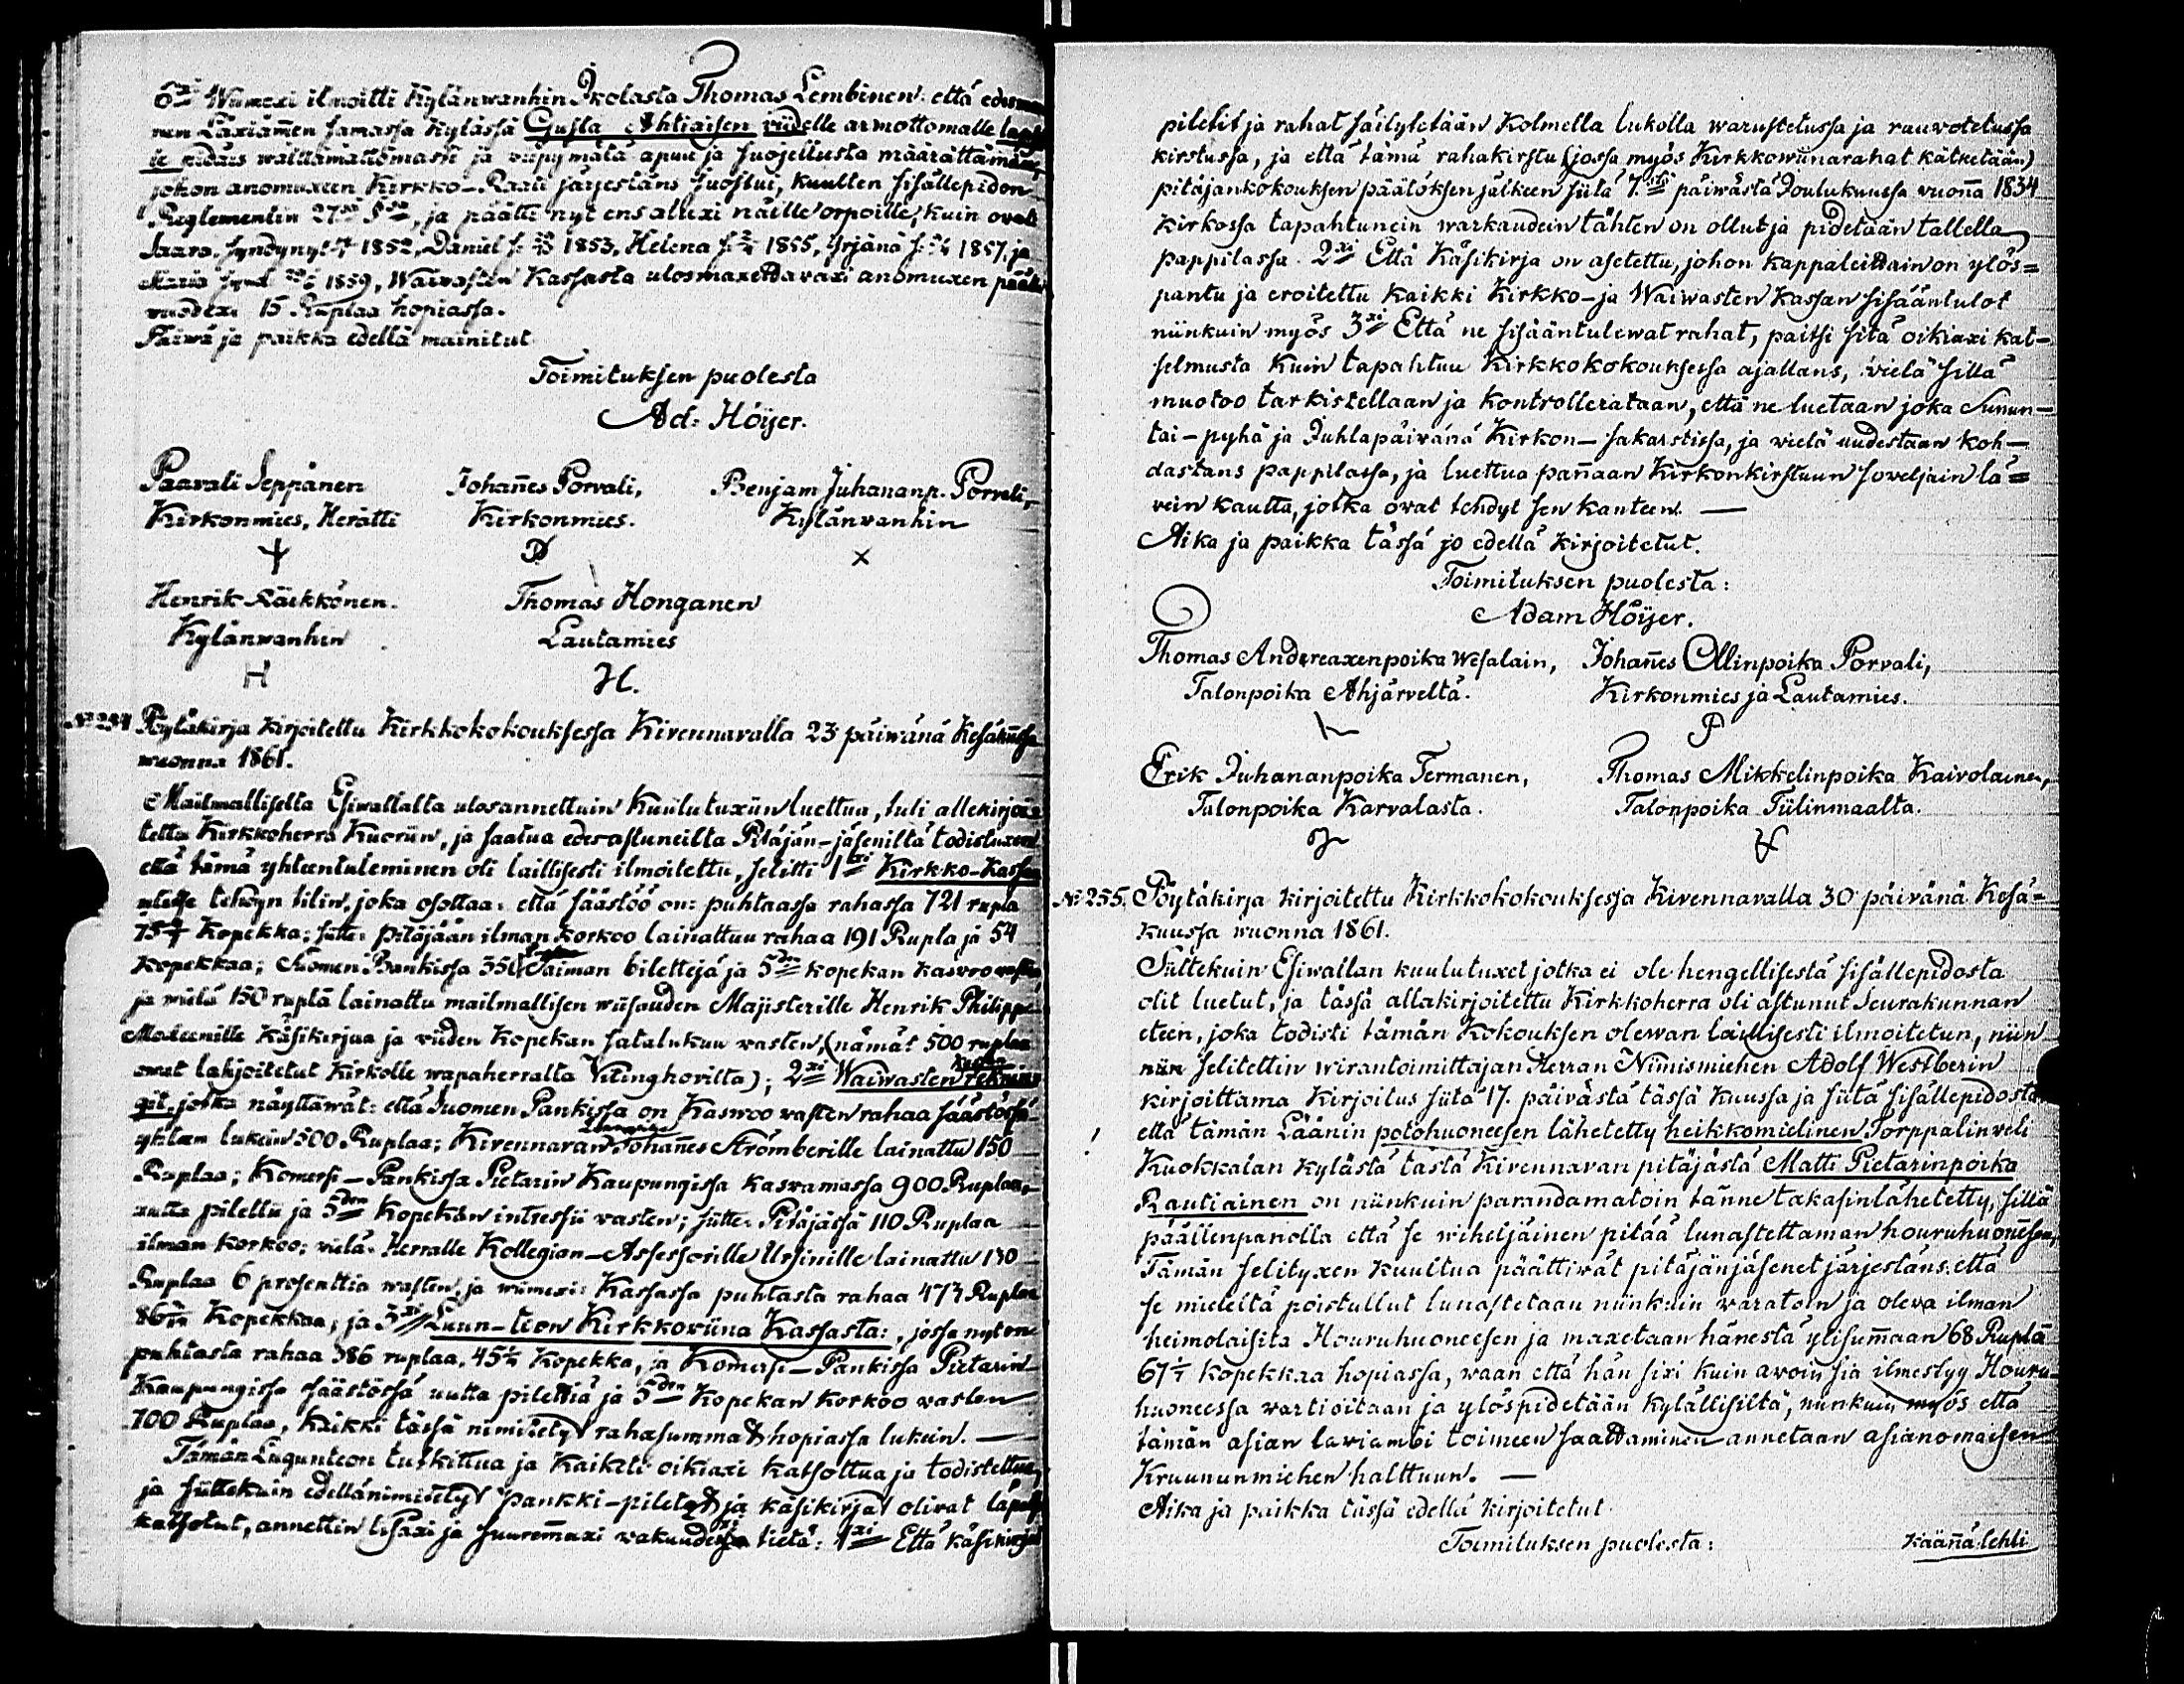 6xi Wiimexi ilmoitti Kylänwanhin Ikolasta Thomas Lembinen: että edesmen-
nen Läxiämen samassa Kylässä Gusta Ahtiaisen viidelle armottomalle
ja pidäis wälttämättömästi ja viipymätä apua ja suojellusta määrättämän,
johon anomuxeen Kirkko-Raati järjestäns suostui, kuullen sisällepidon
Reglementin 27xi §sä, ja päätti nyt ens aluxi näille orpoille, kuin ovat
Saara, syndynyt 1852, Daniel s. 1853, Helena s. 1855, Yrjänä s. 1857, ja
Maria synd. 1859, Waivasten Kassasta ulosmaxettavaxi anomuxen
vuodexi 15 Ruplaa hopiassa.
Päiwä ja paikka edellä mainitut
Toimituksen puolesta
Ad: Höijer.
Paavali Seppänen Johañes Porvali, Benjam Juhananp. Porvali,
Kirkonmies, Herätti Kirkonmies. Kylänvanhin
Henrik Räikkönen. Thomas Honganen
Kylänwanhin Lautamies
H H.
No 254 Pöytäkirja kirjoitettu Kirkkokokouksessa Kivennavalla 23 päiwänä Kesäkuussa
wuonna 1861.
Mailmalliselta Esiwallalta ulosannettuin Kuulutuxiin luettua, tuli allekirjoi-
tettu Kirkkoherra Kuoriin, ja saatua edesastuneilta Pitäjän-jäseniltä todistuxen
että tämä yhteentuleminen oli laillisesti ilmoitettu, selitti 1xi Kirkko-Kassan
tehdyn tilin, joka osottaa: että säästöö on: puhtaassa rahassa 721 rupla
75 Kopekka; sitte: pitäjään ilman korkoo lainattuu rahaa 191 Rupla ja 54
kopekkaa; Suomen Bankissa 350 bilettejä ja 5den kopekan kasvoo
ja wielä 150 ruplä lainattu mailmallisen wiisauden Majisterille Henrik Philipp
Modeenille Käsikirjaa ja viiden kopekan satalukuu vasten, (nämät 500 ruplaa
ovat lahjoitetut Kirkolle wapaherralta Vitinghovilta); 2xi Waiwasten
jotka näyttäwät: että Suomen Pankissa on Kaswoo vasten rahaa säästössä
yhteen lukein 500 Ruplaa; Kivennavan Johañes Strömberille lainattu 150
Ruplaa; Komersi-Pankissa Pietarin Kaupungissa kasvamassa 900 Ruplaa,
uutta pilettii ja 5den Kopekan intressii vasten; sitte: Pitäjässä 110 Ruplaa
ilman korkoo; vielä: Herralle Kollegion-Assessorille Ursinille lainattu 130
Ruplaa 6 prosenttia wasten, ja wiimexi: Kassassa puhtasta rahaa 473 Ruplaa
Kopekkaa; ja 3xi Luun-teon Kirkkoviina Kassasta:, jossa nyt on
puhtasta rahaa 386 ruplaa, 45 Kopekka, ja Komersi-Pankissa Pietarin
Kaupungissa säästössä uutta pilettiä ja 5den Kopekan korkoo vasten
700 Ruplaa, kaikki tässä nimitetyt rahasummat hopiassa lukein. —
Tämän Lugunteon tutkittua ja Kaikiti oikiaxi katsottua ja todistettua,
ja siittekuin edellänimitetyt pankki-piletyt ja käsikirjat olivat läpi
katsotut, annettin lisäxi ja suuremmaxi wakuudexi tietä: 1xi Että käsikirjat
piletit ja rahat säilytetään Kolmella lukolla warustetussa ja rauvotetussa
kirstussa, ja että tämä rahakirstu (jossa myös Kirkkowiinarahat kätketään)
pitäjänkokouksen päätöksen jälkeen siitä 7stä päiwästä Joulukuussa vuonã 1834
kirkossa tapahtunein warkaudein tähten on ollut ja pidetään tallella
pappilassa. 2xi Että Käsikirja on asetettu, johon kappaleittain on ylös=
pantu ja eroitettu kaikki Kirkko- ja Waiwasten Kassan sisääntulot
niinkuin myös 3xi Että ne sisääntulewat rahat, paitsi sitä oikiaxi kat-
selmusta kuin tapahtuu Kirkkokokouksessa ajallans, vielä sillä
muotoo tarkistellaan ja kontrollerataan, että ne luetaan joka Sunun-
tai-pyhä ja Juhlapäivänä Kirkon-sakarstissa, ja vielä uudestaan koh-
dastans pappilassa, ja luettua pañaan Kirkonkirstuun soveljain lä=
vein kautta, jotka ovat tehdyt sen kanteen. —
Aika ja paikka tässä jo edellä kirjoitetut.
Toimituksen puolesta:
Adam Höijer.
Thomas Andereaxenpoika Wesalain, Johañes Ollinpoika Porvali,
Talonpoika Ahjärveltä. Kirkonmies ja Lautamies.
P
Erik Juhananpoika Termanen, Thomas Mikkelinpoika Kaivolainen,
Talonpoika Karvalasta. Talonpoika Tiilinmaalta.
No 255. Pöytäkirja kirjoitettu Kirkkokokouksessa Kivennavalla 30 päivänä Kesä=
kuussa wuonna 1861.
Siittekuin Esiwallan kuulutuxet jotka ei ole hengellisestä sisällepidosta
olit luetut, ja tässä allakirjoitettu Kirkkoherra oli astunut Seurakunnan
eteen, joka todisti tämän Kokouksen olewan laillisesti ilmoitetun, niin
niin selitettin wirantoimittajan Herran Nimismiehen Adolf Westberin
kirjoittama Kirjoitus siitä 17. päivästä tässä Kuussa ja siitä sisällepidosta
että tämän Läänin potohuoneesen lähetetty heikkomielinen Torppalin veli
Kuokkalan kylästä tästä Kivennavan pitäjästä Matti Pietarinpoika
Rautiainen on niinkuin parandamatoin tänne takasinlähetetty, sillä
päällenpanolla että se wiheljäinen pitää lunastettaman houruhuoneesen,
Tämän selityxen kuultua päättiwät pitäjänjäsenet järjestäns: että
se mieleltä poistullut lunastetaan niinkuin varatoin ja oleva ilman
heimolaisita Houruhuoneesen ja maxetaan hänestä ylisummaan 68 Ruplä
67 1/7 kopekkaa hopiassa, waan että hän sixi kuin avoin sia ilmestyy Houru-
huoneessa vartioitaan ja ylöspidetään kylällisiltä, niinkuin myös että
tämän asian laviambi toimeen saattaminen annetaan asianomaisen
Kruununmiehen halttuun. —
Aika ja paikka tässä edellä kirjoitetut
Toimituksen puolesta: Käañä lehti